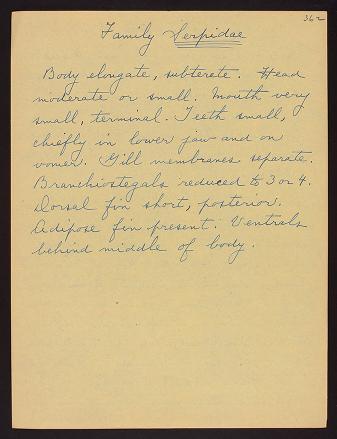 362
Family Serpidae
Body elongate, subterete. Head
moderate or small. Mouth very
small, terminal. Teeth small,
chiefly in lower jaw and on
vomer. Gill membranes separate.
Branchiostegals reduced to 3 or 4.
Dorsal fin short, posterior.
Adipose fin present. Ventrals
behind middle of body.